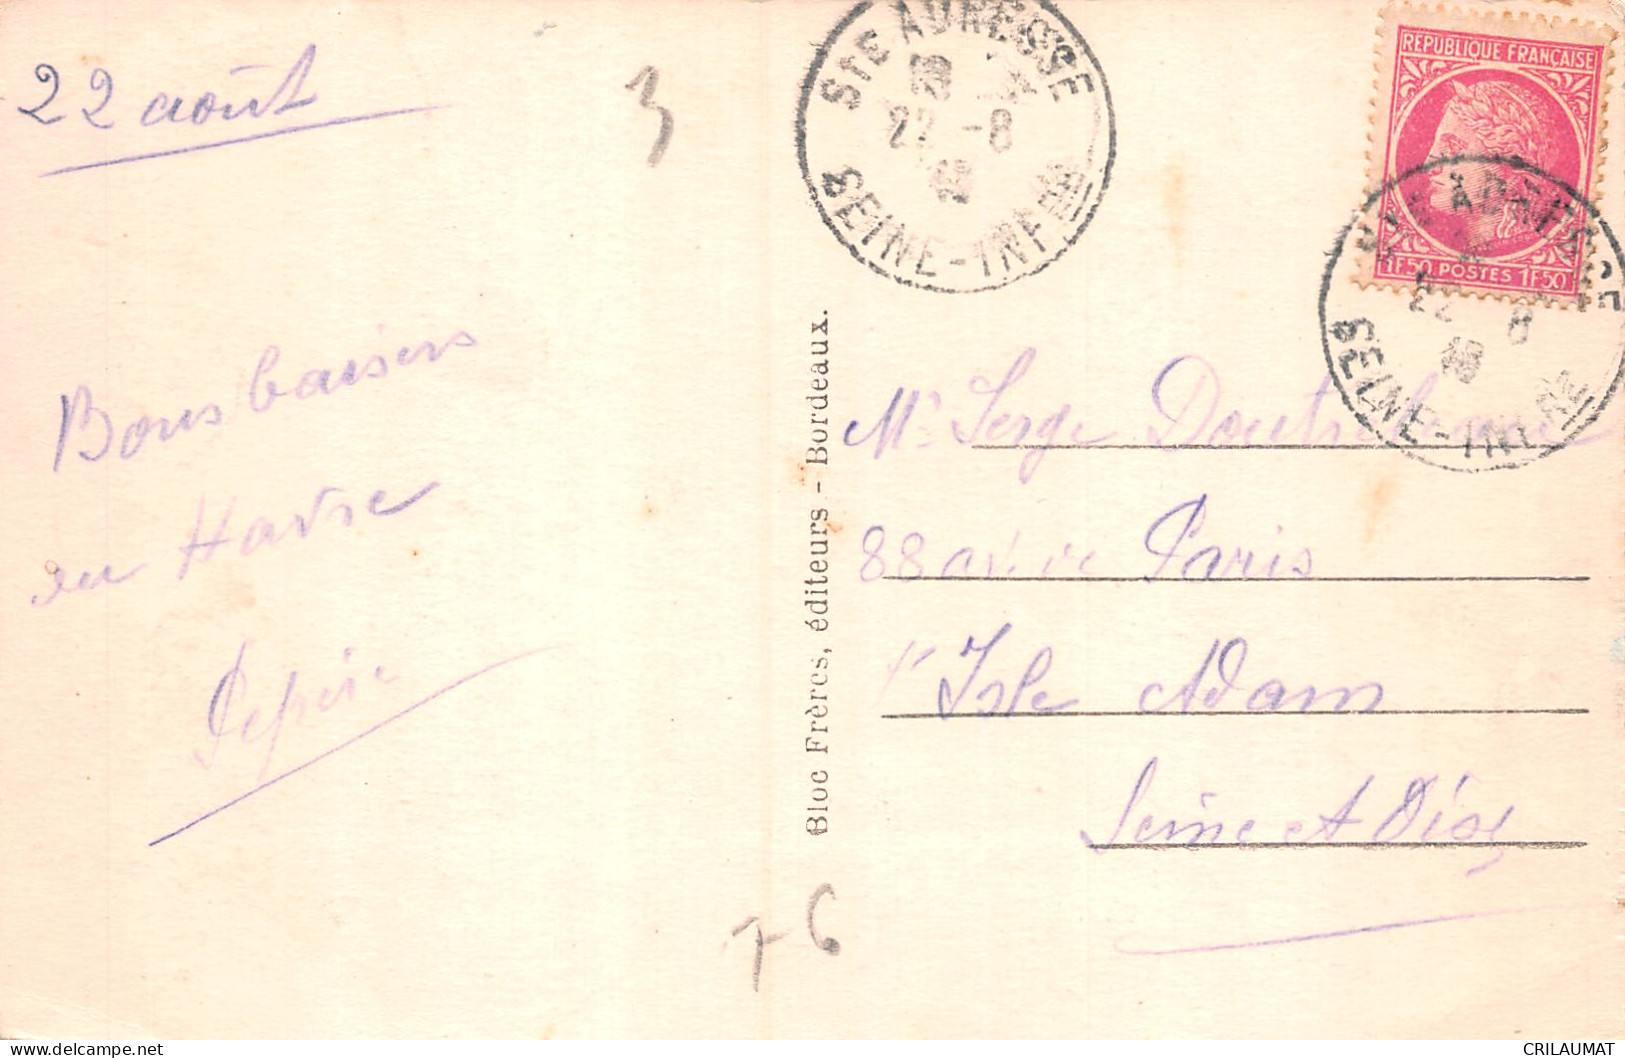 22 août
Bons baisers
du Havre
Pépère
3
76
STE ADRESSE
18
22 -8
SEINE-INFRE
REPUBLIQUE FRANÇAISE
1F50 POSTES 1F50
22 8
SEINE-INFRE
Bloc Frères, éditeurs - Bordeaux.
Mr Serge
88 av. de Paris
l'Isle Adam
Seine et Oise
CRILAUMAT